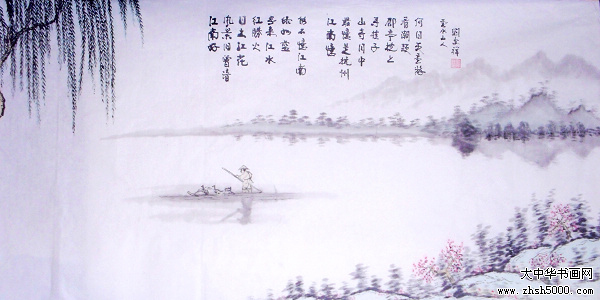 江南好
風景旧曾谙
日出江花
红勝火
春来江水
绿如蓝
能不憶江南
江南憶
最憶是杭州
山寺月中
尋桂子
郡亭枕上
看潮頭
何日更重游
山人
大中华书画网
www.zhsh5000.com